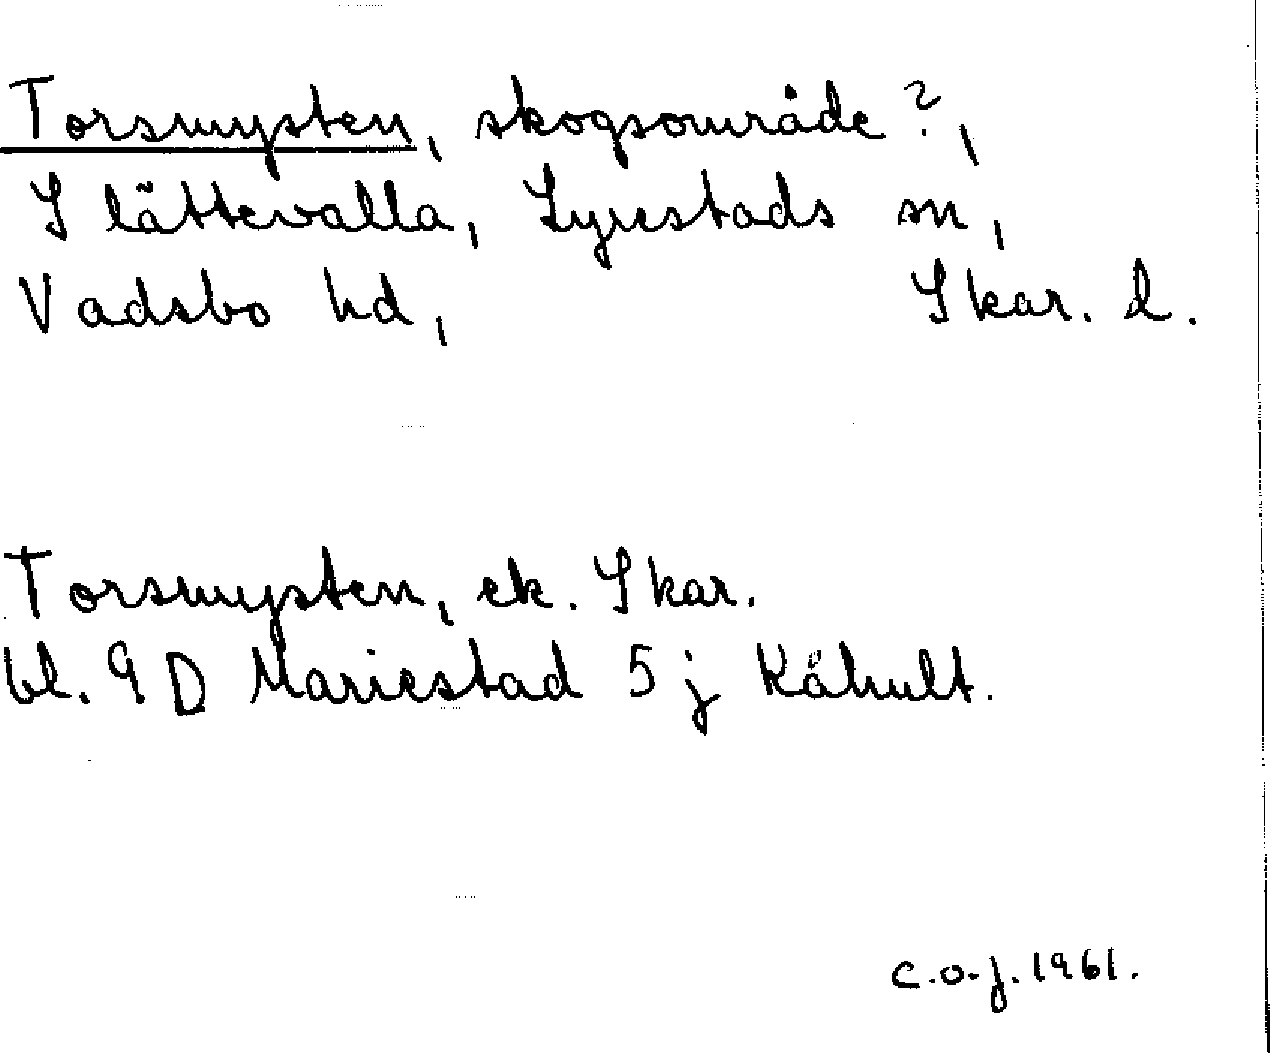 Torsmysten, skogsområde?,
Slättevalla, Lyrestads sn,
Vadsbo hd, Skar. l.
Torsmysten, ek. Skar.
bl. 9 D Mariestad 5 j Kåhult.
C.O-j. 1961.